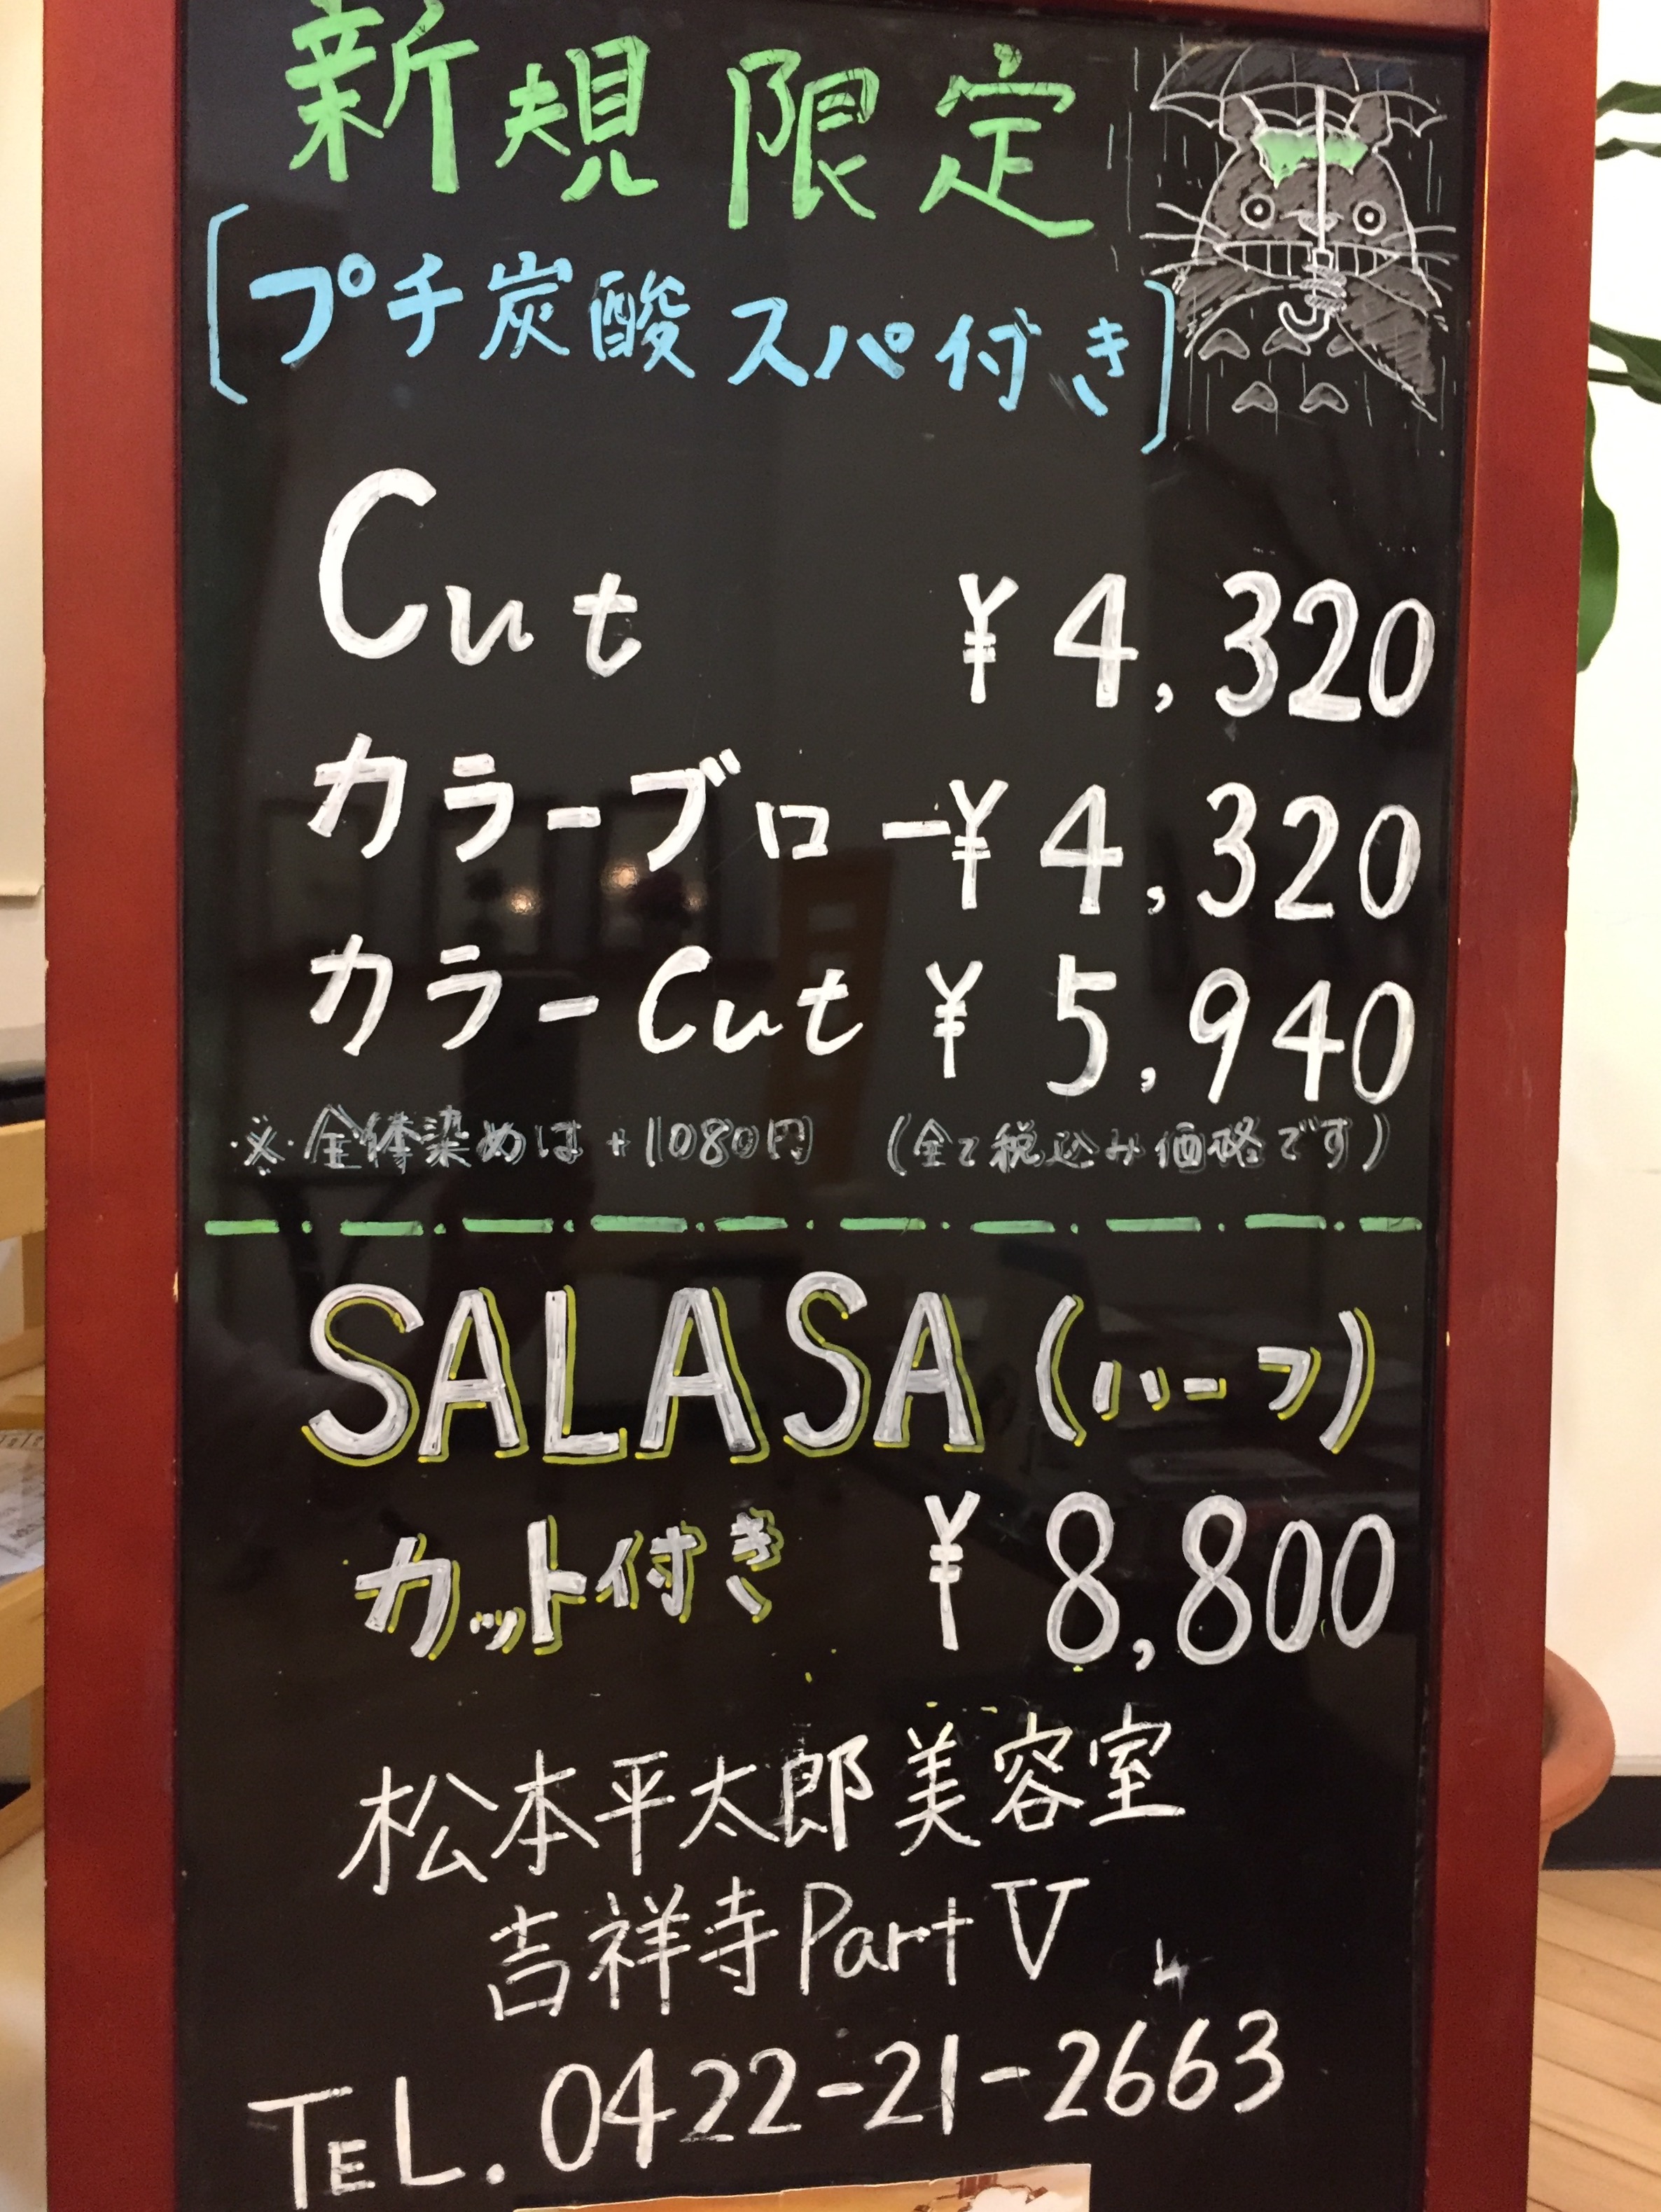 新規限定
[プチ炭酸スパ付き]
Cut ¥4,320
カラーブロー ¥4,320
カラーCut ¥5,940
※全体染めは+1080円 (全て税込み価格です)
SALASA(ハーフ)
カット付き ¥8,800
松本平太郎美容室
吉祥寺Part V
TEL. 0422-21-2663